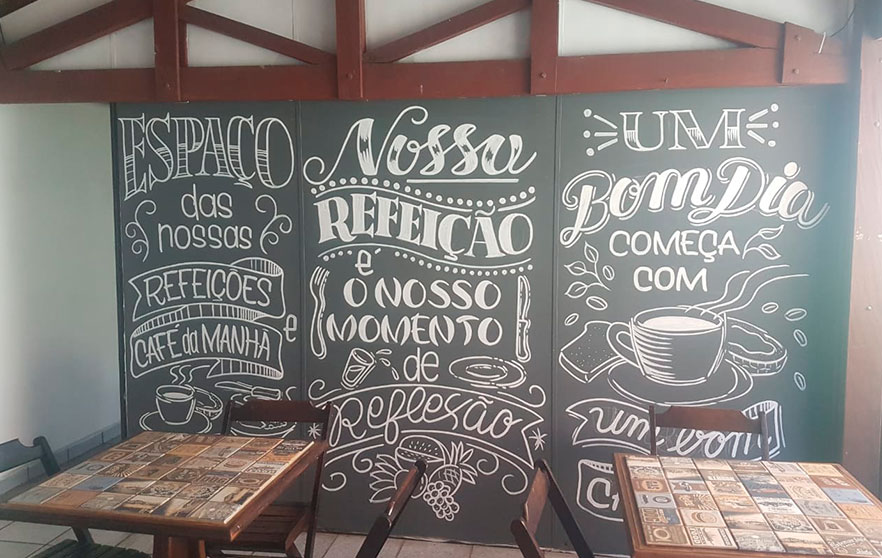 ESPAÇO
das
nossas
REFEIÇÕES
e
CAFÉ da MANHA
Nossa
REFEIÇÃO
é
O NOSSO
MOMENTO
de
Reflexão
UM
Bom Dia
COMEÇA
COM
um bom